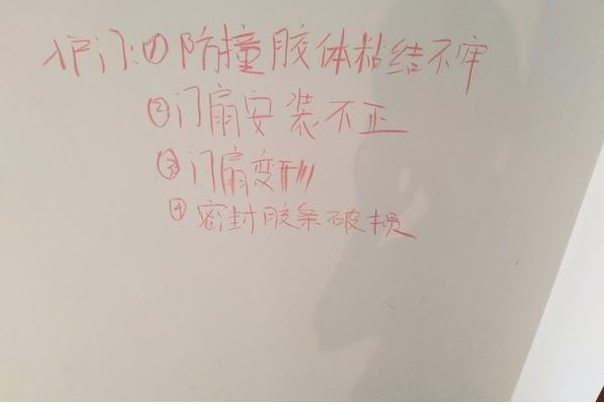 入户门:①防撞胶体粘结不牢
②门扇安装不正
③门扇变形
④密封胶条破损